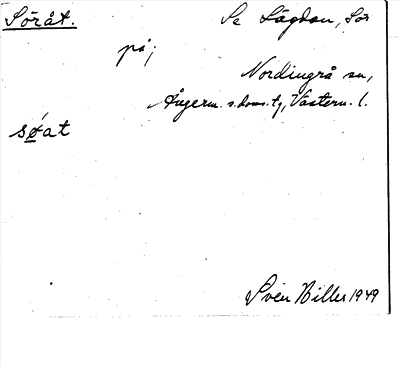 Söråt. Se Lägdan, Sör
på;
Nordingrå sn,
Ångerm. s. doms. tg, Västern. l.
søat
Sven Hiller 1949